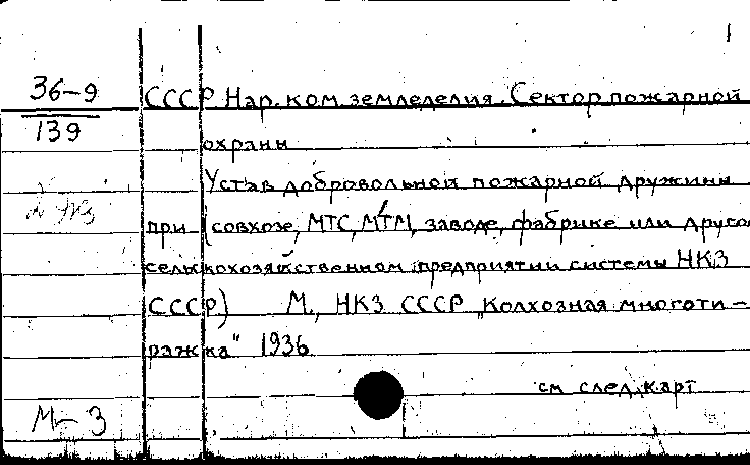 36-9 СССР Нар. ком. земледелия. Сектор пожарной
139
охраны
Устав добровольной пожарной дружины
при (совхозе, МТС, МТМ, заводе, фабрике или друго
сельскохозяйственном предприятии системы НКЗ
СССР) М., НКЗ СССР „Колхозная многоти-
ражка" 1936
см след. карт
М-3